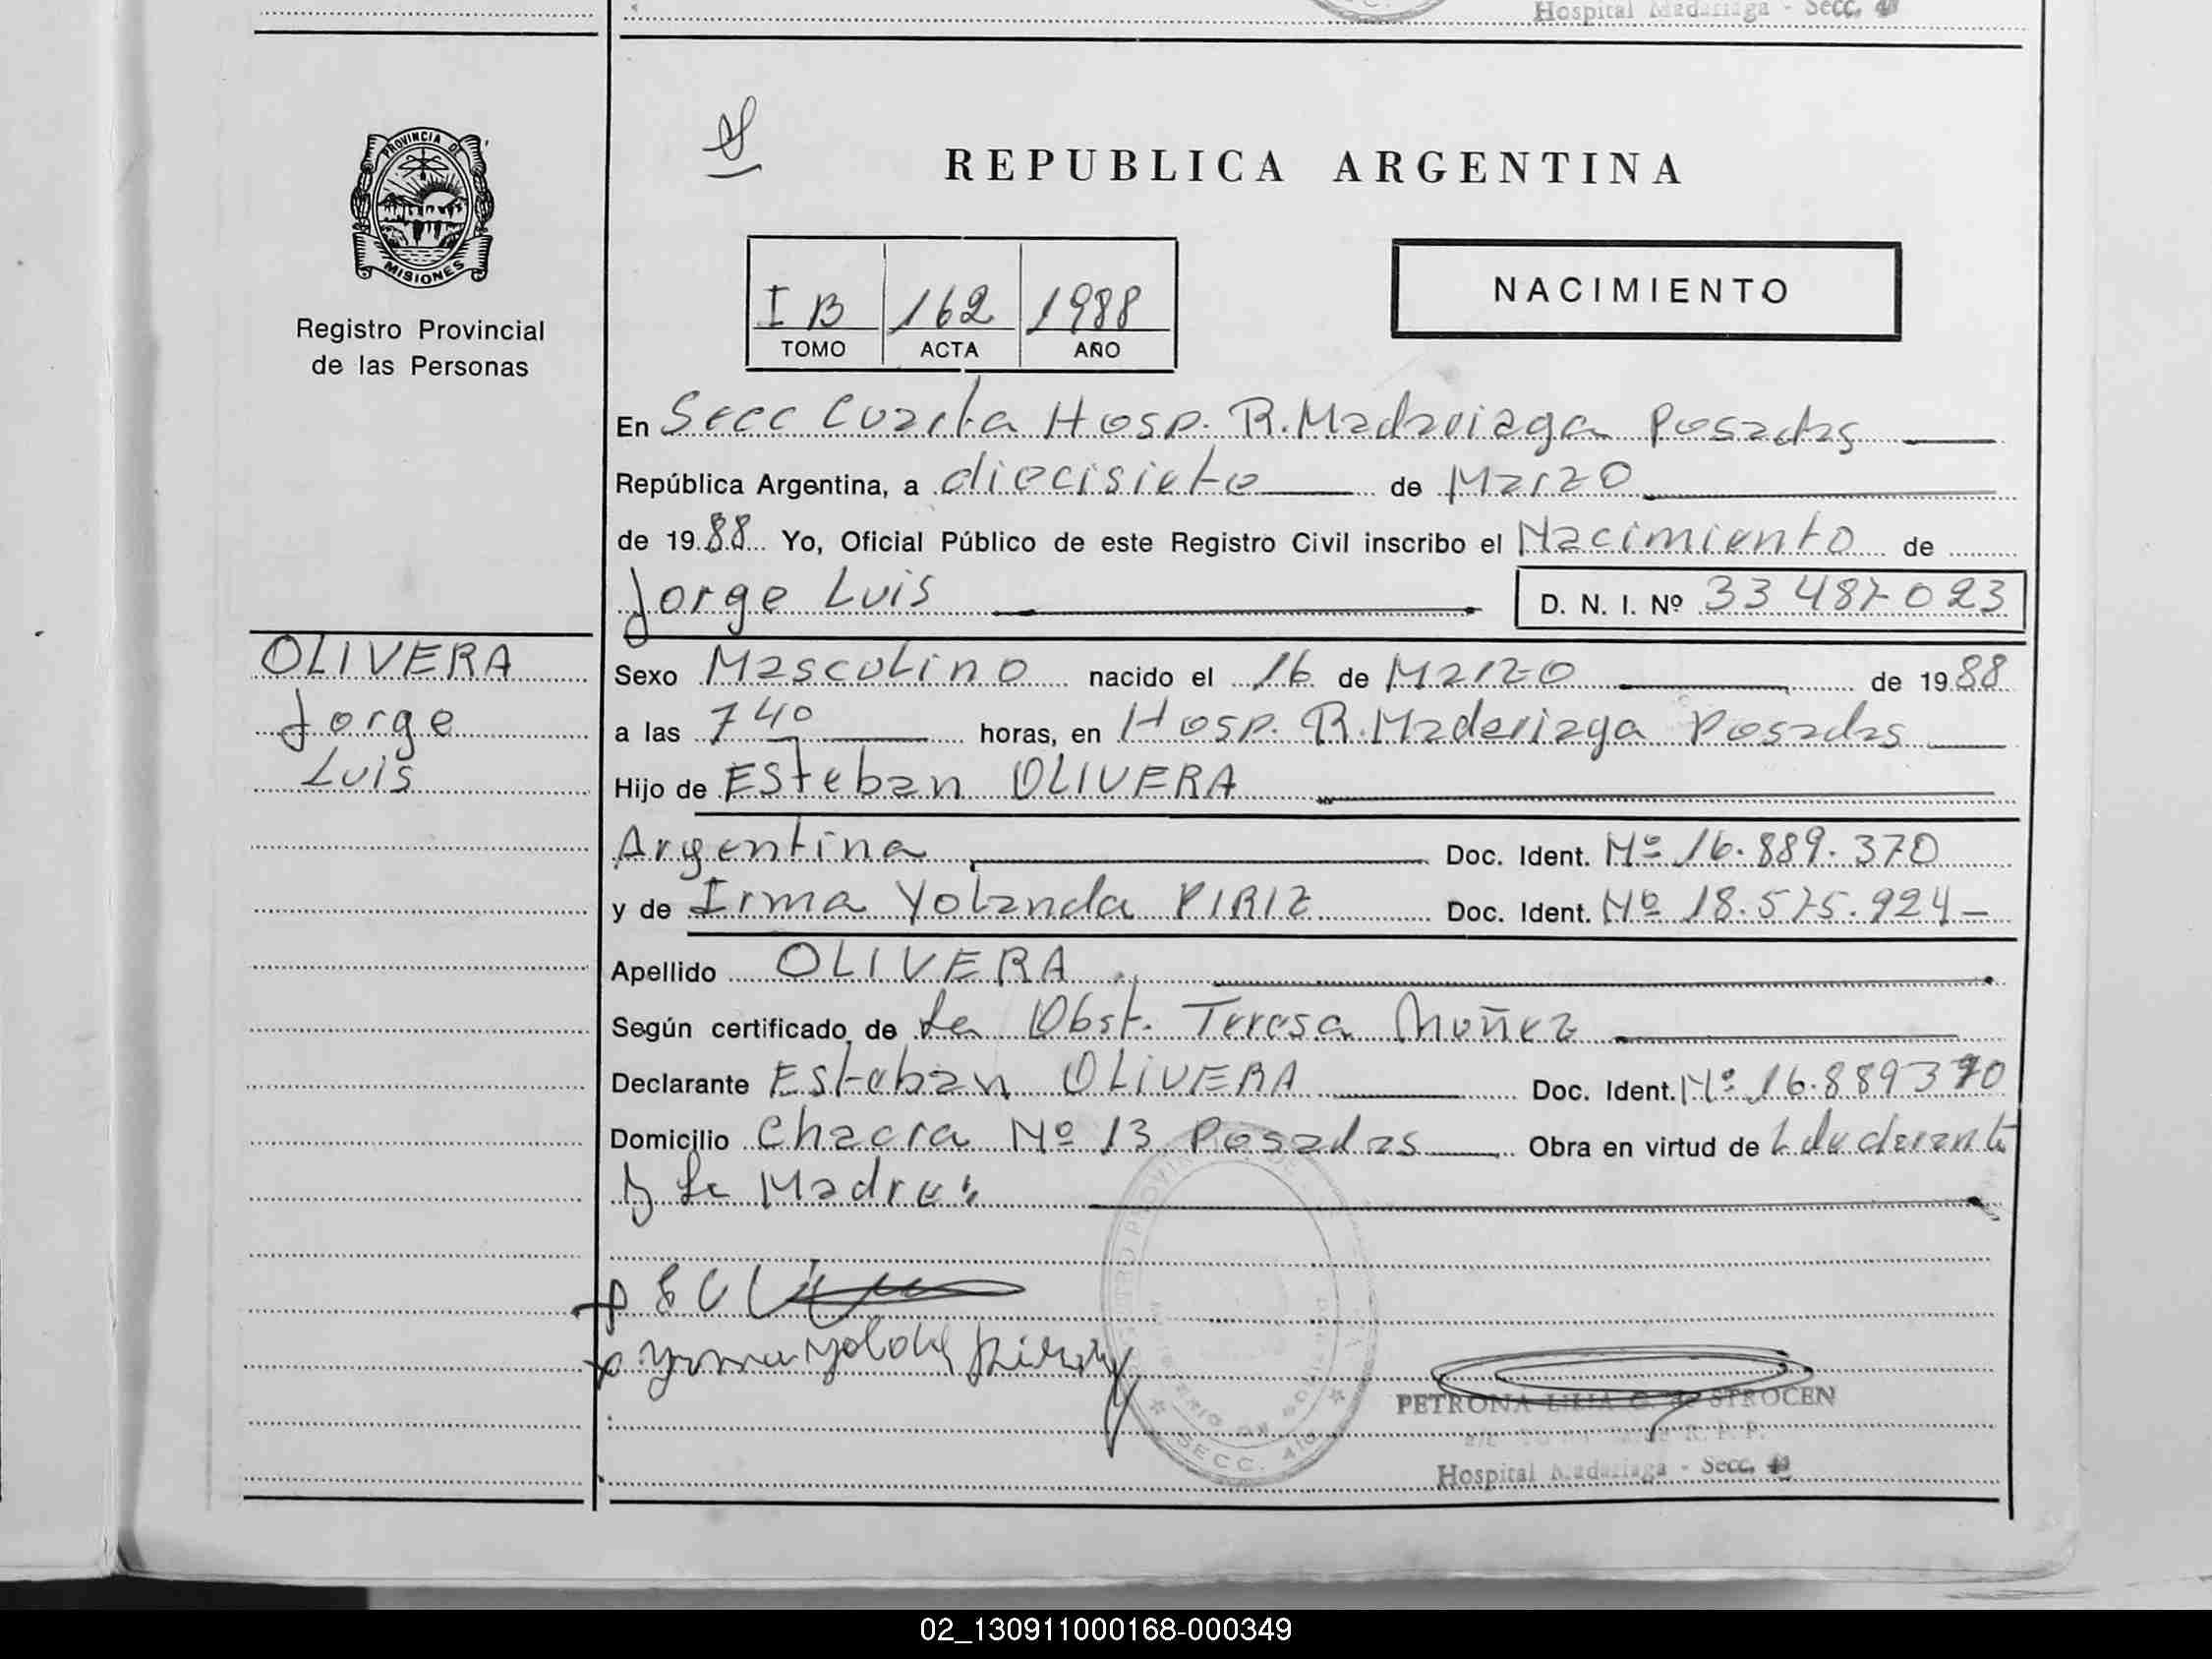 Hospital Madariaga - Secc.
PROVINCIA DE
MISIONES
Registro Provincial
de las Personas
REPUBLICA ARGENTINA
I B 162 1988
TOMO ACTA AÑO
NACIMIENTO
En Secc Cuarta Hosp. R. Madariaga Posadas
República Argentina, a diecisiete de Marzo
de 1988 Yo, Oficial Público de este Registro Civil inscribo el Nacimiento de
Jorge Luis D. N. I. Nº 33 487 023
OLIVERA
Jorge
Luis
Sexo Masculino nacido el 16 de Marzo de 1988
a las 7 40 horas, en Hosp. R. Madariaga Posadas
Hijo de Esteban OLIVERA
Argentina Doc. Ident. Nº 16.889.370
y de Irma Yolanda PIRIZ Doc. Ident. Nº 18.575.924
Apellido OLIVERA
Según certificado de La Obst. Teresa Muñez
Declarante Esteban OLIVERA Doc. Ident. Nº 16.889370
Domicilio Chacra Nº 13 Posadas Obra en virtud de
y La Madre
PETRONA LILIA G. de STROCEN
R. P. P.
Hospital Madariaga - Secc.
SECC. 4ta
02_130911000168-000349